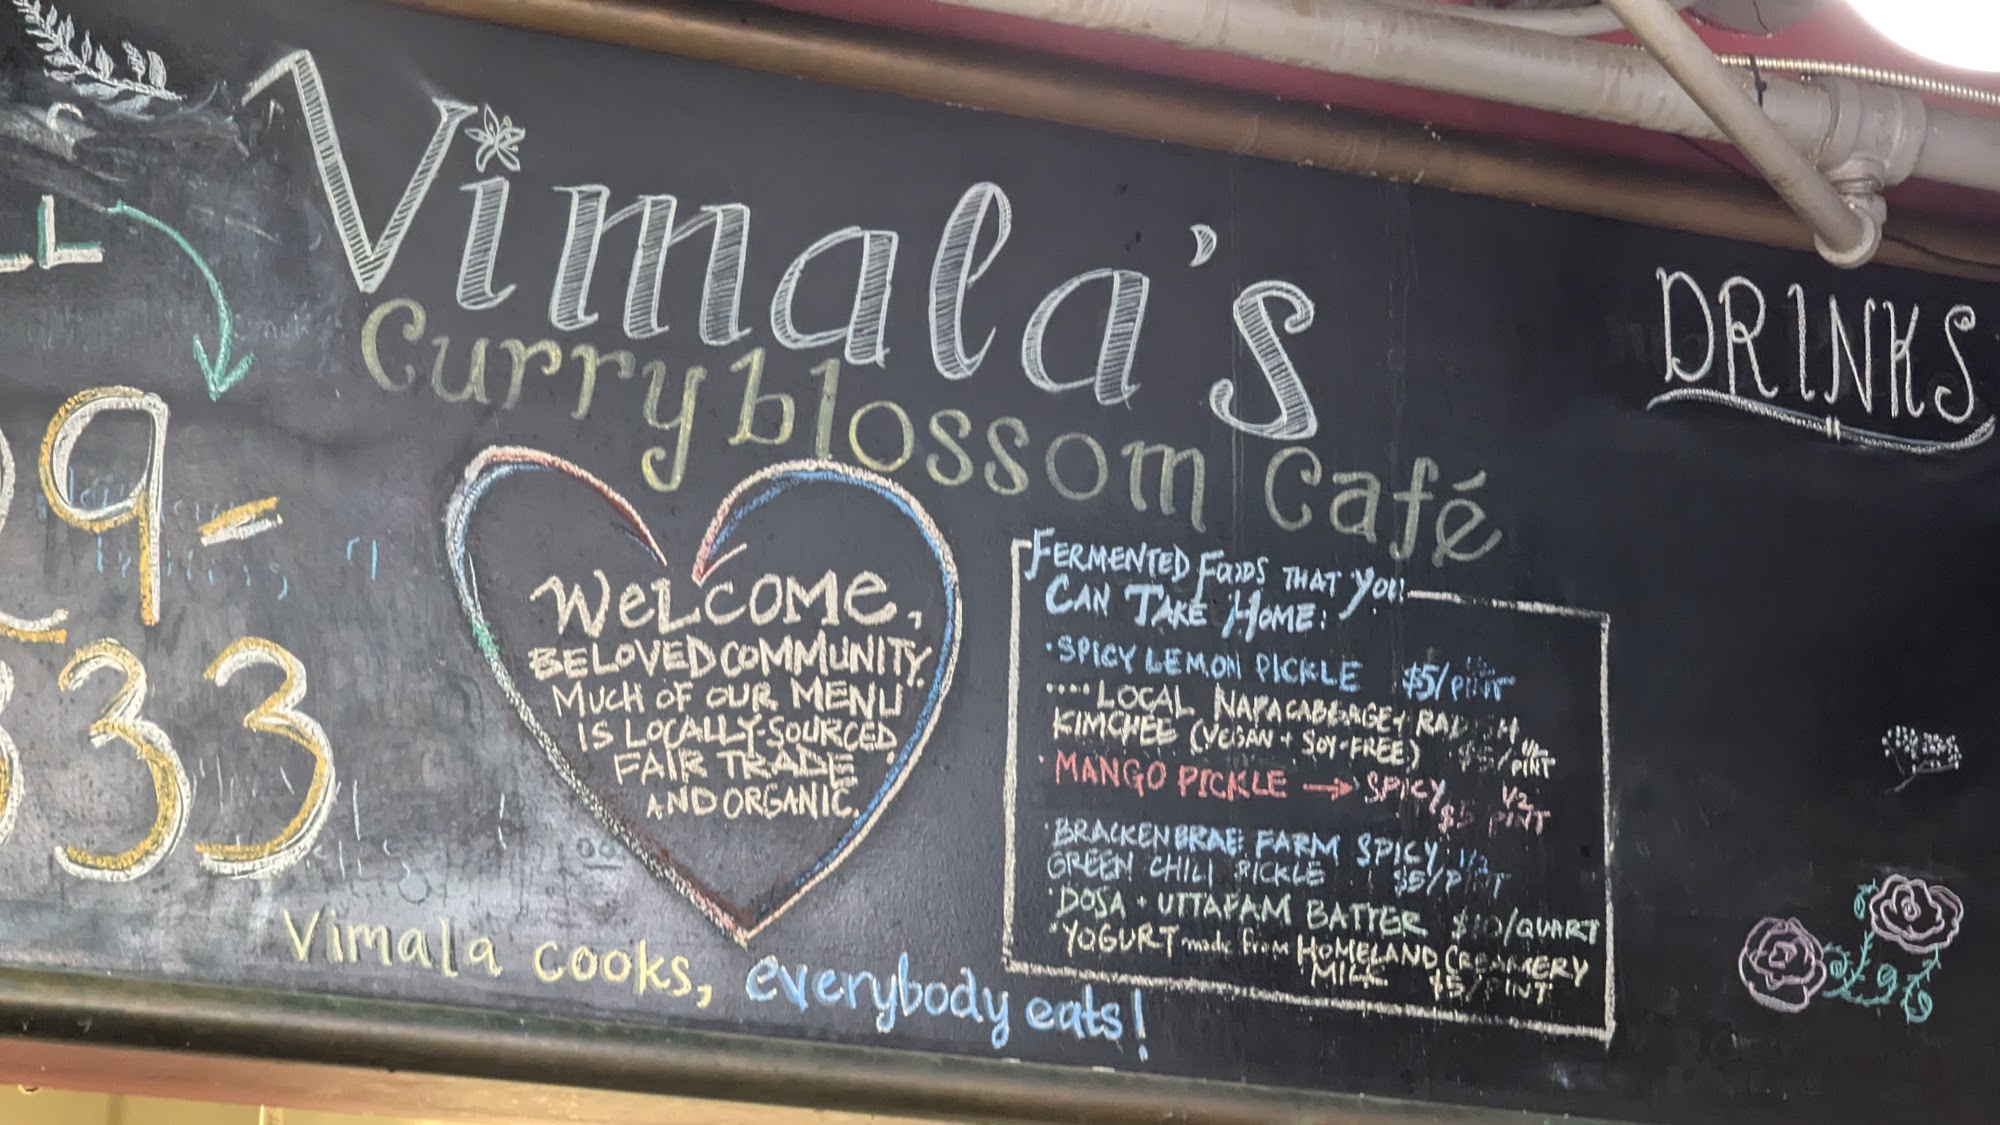 Vimala's
Curryblossom Café
DRINKS
9-
33
WELCOME,
BELOVED COMMUNITY.
MUCH OF OUR MENU
IS LOCALLY-SOURCED,
FAIR TRADE
AND ORGANIC.
FERMENTED FOODS THAT YOU
CAN TAKE HOME:
• SPICY LEMON PICKLE $5/ PINT
.... LOCAL NAPA CABBAGE +
KIMCHEE (VEGAN + SOY-FREE) $5/ 1/2 PINT
• MANGO PICKLE → SPICY
$5 1/2 PINT
• BRACKENBRAE FARM SPICY
GREEN CHILI PICKLE $5/ 1/2 PINT
• DOSA + UTTAPAM BATTER $10/QUART
• YOGURT made from HOMELAND CREAMERY
MILK $5/PINT
Vimala cooks, everybody eats!